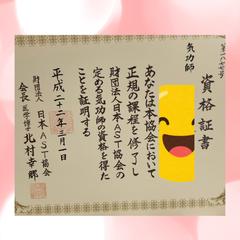 資格証書
気功師
あなたは本協会において
正規の課程を修了し
財団法人日本AST協会の
定める気功師の資格を得た
ことを証明する
平成二十二年三月一日
財団法人 日本AST協会
会長 医学博士 北村幸